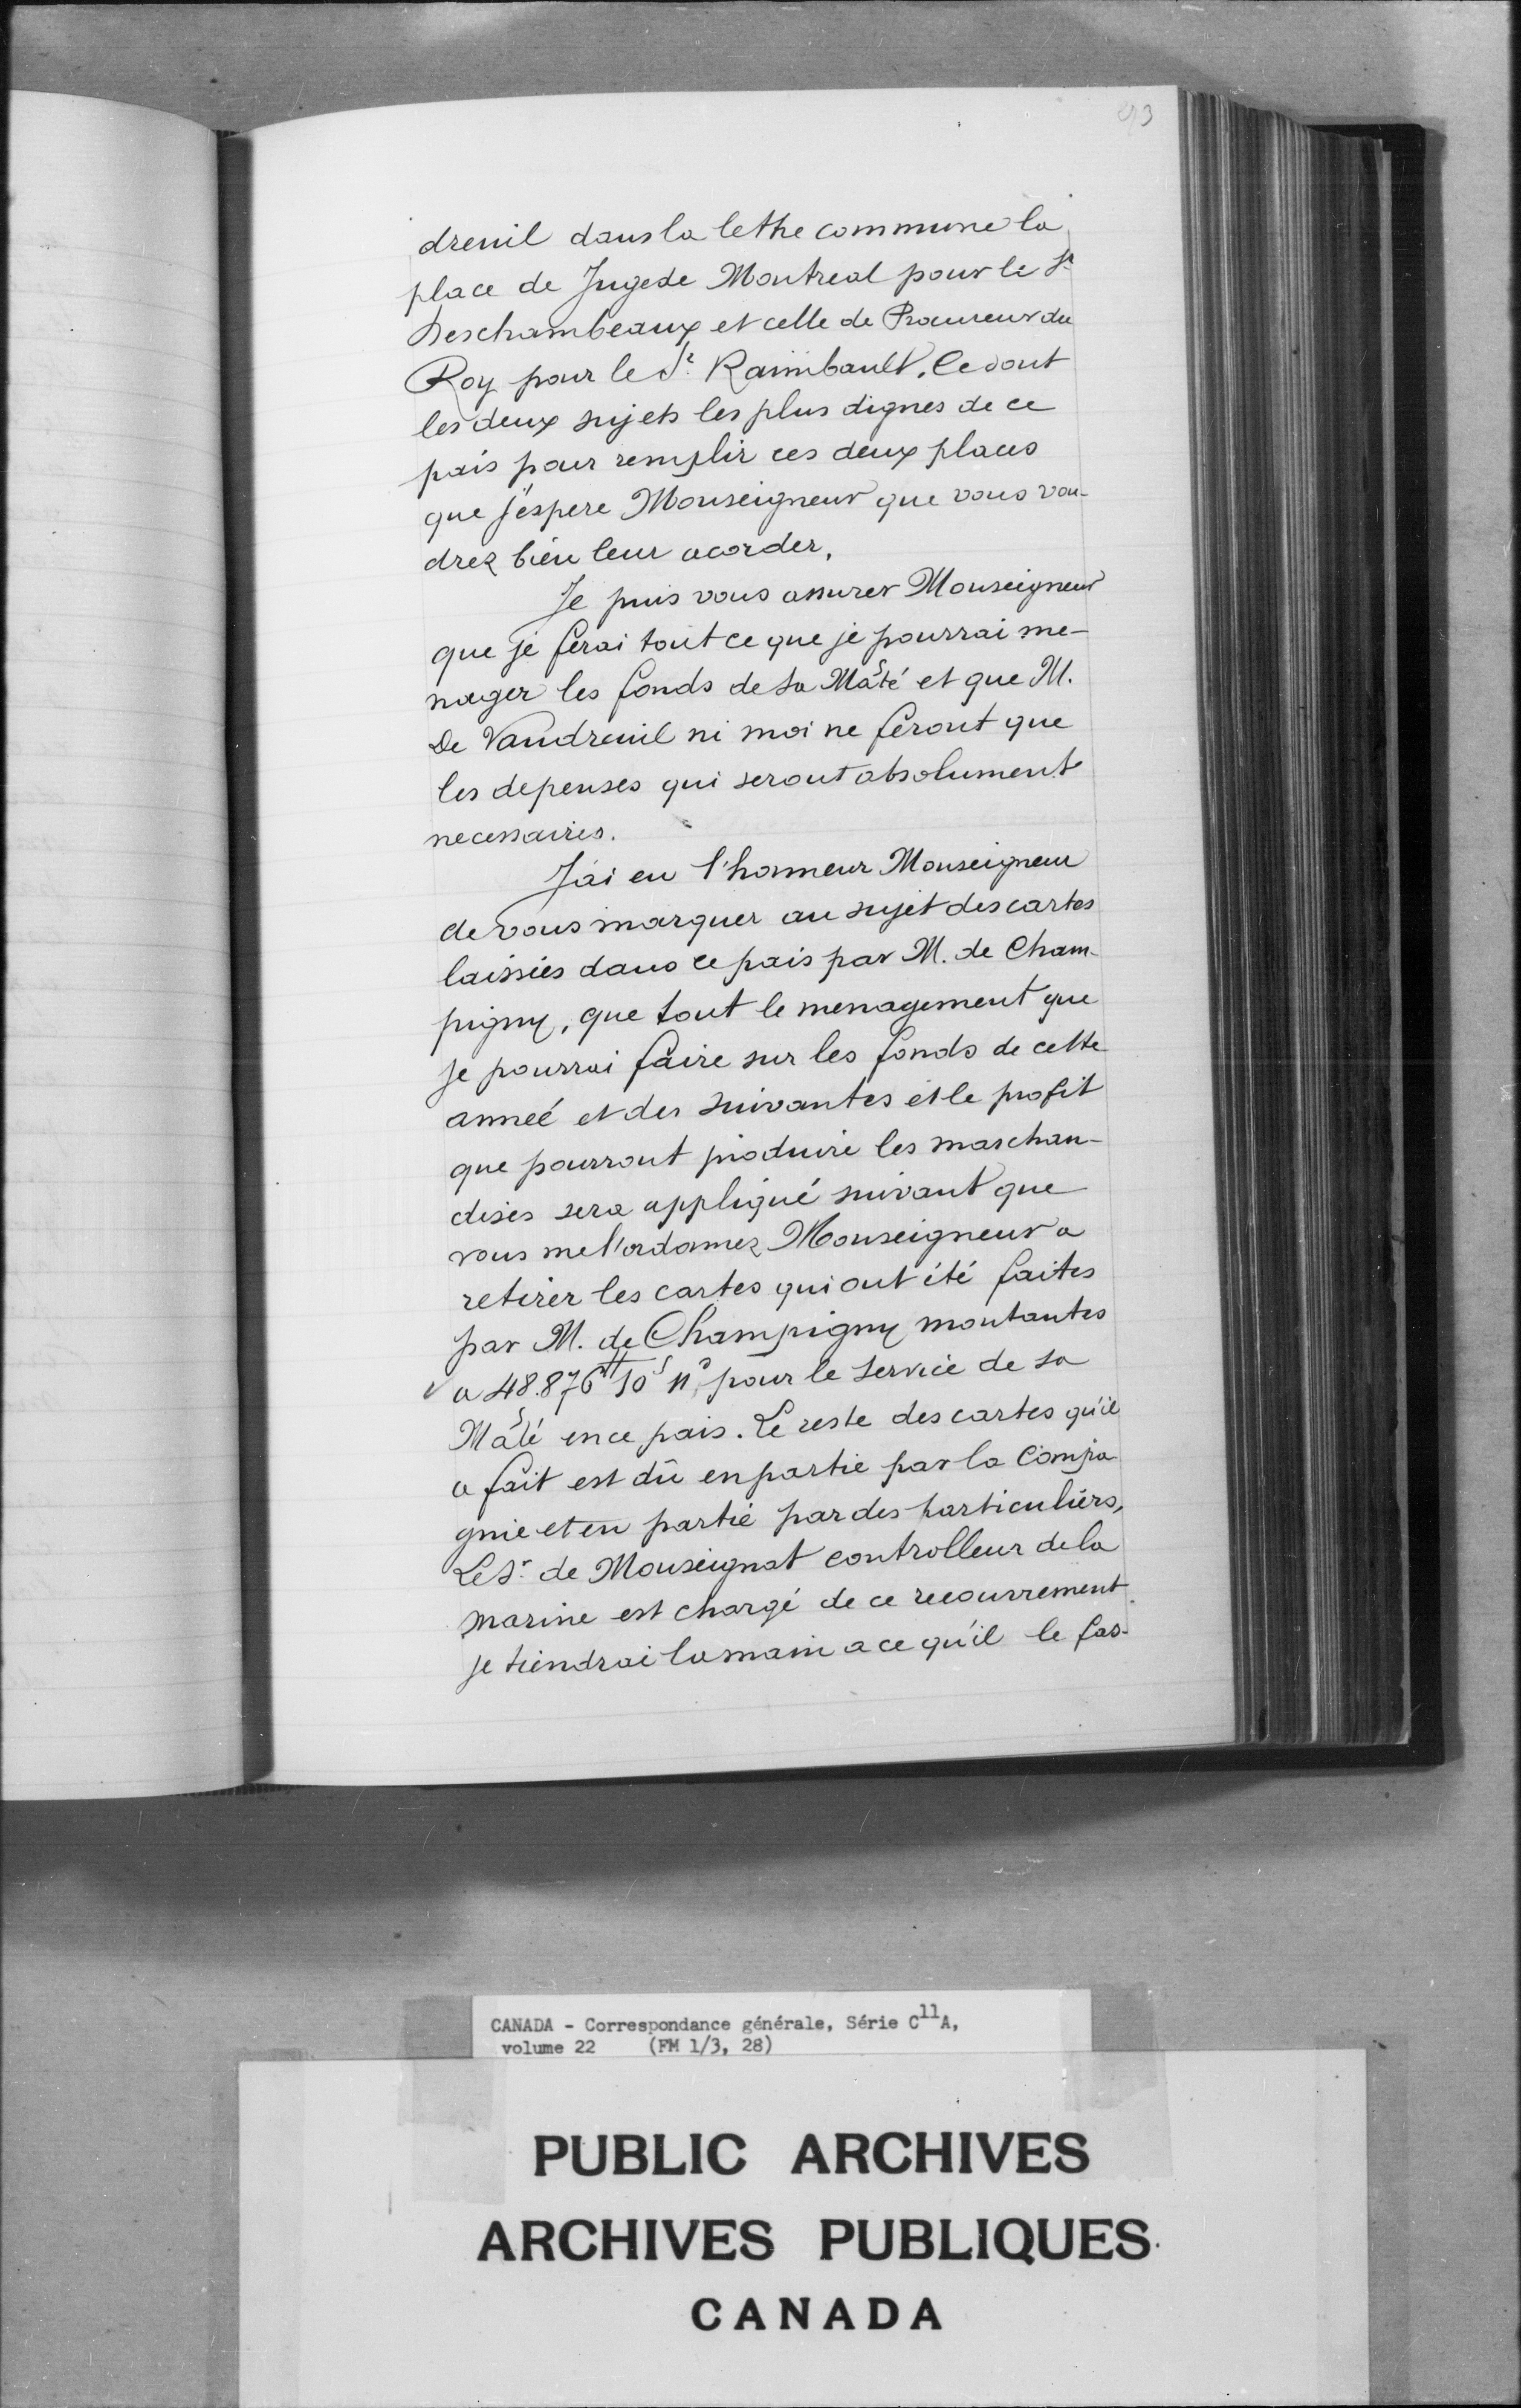 dreuil dans la lettre commune la
place de Juge de Montreal pour le Sr
Deschambeaux et celle de Procureur du
Roy pour le Sr. Raimbault. Ce sont
les deux sujets les plus dignes de ce
païs pour remplir ces deux places
que j'espere Monseigneur que vous vou-
drez bien leur acorder.
Je puis vous assurer Monseigneur
que je ferai tout ce que je pourrai me-
nager les fonds de Sa Masté et que M.
De Vaudreuil ni moi ne feront que
les depenses qui seront absolument
necessaires.
J'ai eu l'honneur Monseigneur
de vous marquer au sujet des cartes
laissies dans ce pais par M. de Cham-
pigny, que tout le menagement que
je pourrai faire sur les fonds de cette
anneé et des suivantes et le profit
que pourront produire les marchan-
dises sera appliqué suivant que
vous me l'ordonnez Monseigneur a
retirer les cartes qui ont été faites
par M. de Champigny montantes
a 48.876tt 10s 11d pour le service de sa
Masté en ce pais. Le reste des cartes qu'il
a fait est dû en partie par la Compa
gnie et en partie par des particuliers,
Le Sr. de Monseignat controlleur de la
marine est chargé de ce recouvrement.
je tiendrai la main a ce qu'il le fas-
CANADA - Correspondance générale, Série C11A,
volume 22 (FM 1/3, 28)
PUBLIC ARCHIVES
ARCHIVES PUBLIQUES
CANADA